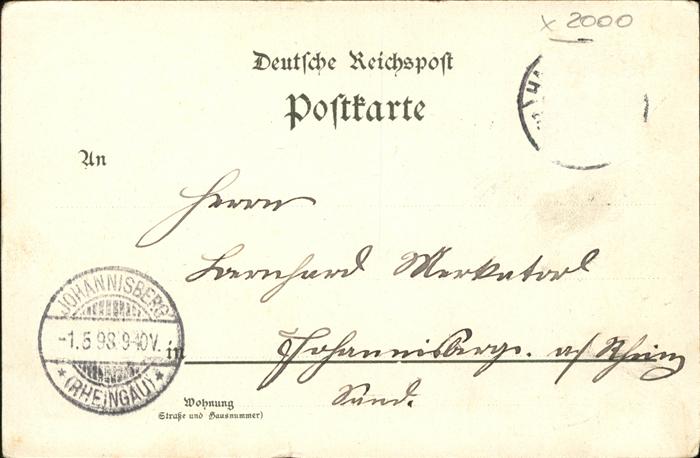 x 2000
Deutsche Reichspost
Postkarte
An
Herrn
Bernhard Merkator
JOHANNISBERG
-1.5.98.9-10V.
* (RHEINGAU) *
in Johannisberg. a/ Rhein
Wohnung
(Straße und Hausnummer)